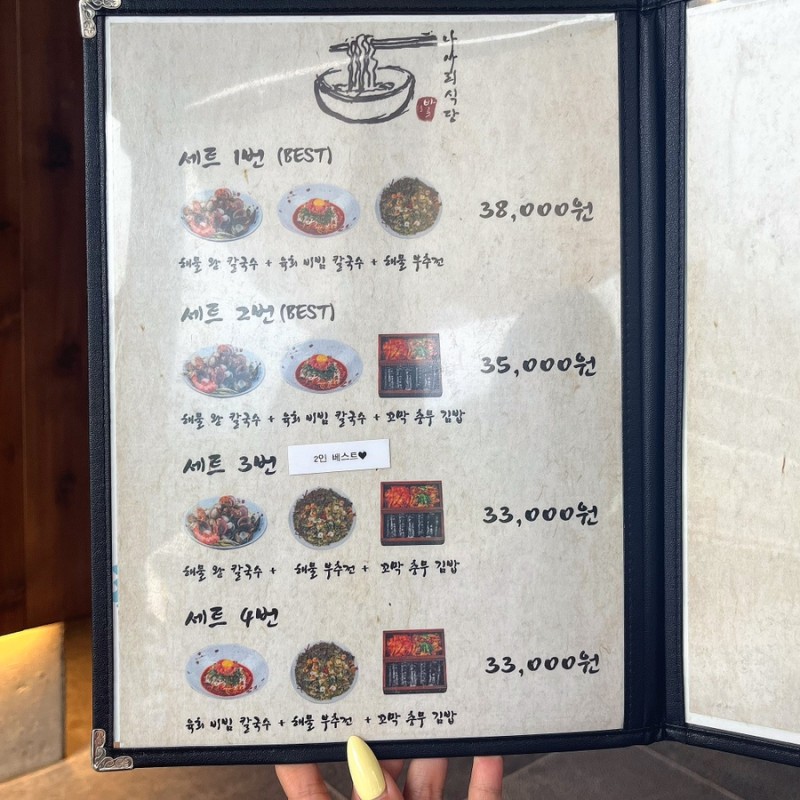 나아리식당
세트 1번 (BEST)
38,000원
해물 왕 칼국수 + 육회 비빔 칼국수 + 해물 부추전
세트 2번 (BEST)
35,000원
해물 왕 칼국수 + 육회 비빔 칼국수 + 꼬막 충무 김밥
세트 3번
2인 베스트♥
33,000원
해물 왕 칼국수 + 해물 부추전 + 꼬막 충무 김밥
세트 4번
33,000원
육회 비빔 칼국수 + 해물 부추전 + 꼬막 충무 김밥